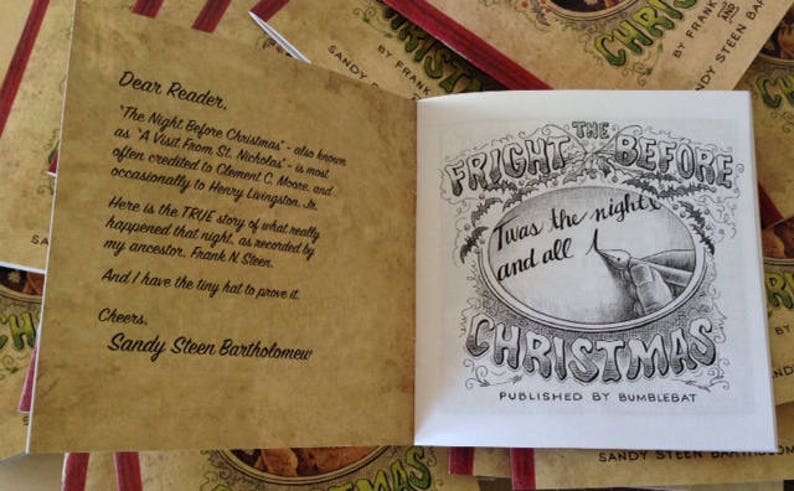 Dear Reader,
"The Night Before Christmas" - also known
as "A Visit From St. Nicholas" - is most
often credited to Clement C. Moore, and
occasionally to Henry Livingston, Jr.
Here is the TRUE story of what really
happened that night, as recorded by
my ancestor, Frank N. Steen.
And I have the tiny hat to prove it.
Cheers,
Sandy Steen Bartholomew
THE
FRIGHT BEFORE
Twas the night
and all
CHRISTMAS
PUBLISHED BY BUMBLEBAT
CHRISTMAS
BY FRANK
SANDY
CHRISTMAS
BY FRANK
AND
SANDY STEEN BAR
CHRISTMAS
SANDY STEEN BARTHOLOM